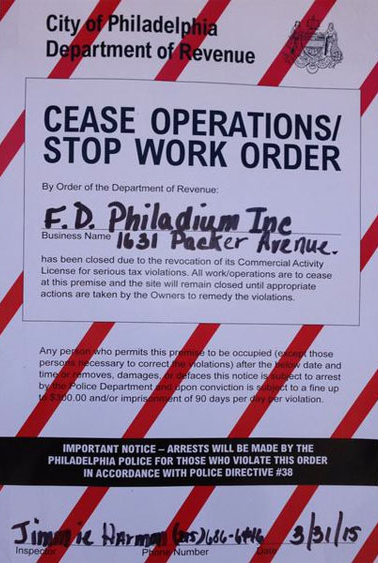 City of Philadelphia
Department of Revenue
CEASE OPERATIONS/
STOP WORK ORDER
By Order of the Department of Revenue:
F.D. Philadium Inc
Business Name 1631 Packer Avenue.
has been closed due to the revocation of its Commercial Activity
License for serious tax violations. All work/operations are to cease
at this premise and the site will remain closed until appropriate
actions are taken by the Owners to remedy the violations.
Any person who permits this premise to be occupied (except those
persons necessary to correct the violations) after the below date and
time or removes, damages, or defaces this notice is subject to arrest
by the Police Department and upon conviction is subject to a fine up
to $300.00 and/or imprisonment of 90 days per day per violation.
IMPORTANT NOTICE – ARRESTS WILL BE MADE BY THE
PHILADELPHIA POLICE FOR THOSE WHO VIOLATE THIS ORDER
IN ACCORDANCE WITH POLICE DIRECTIVE #38
Jimmie Harmon (215) 686-6446 3/31/15
Inspector Phone Number Date